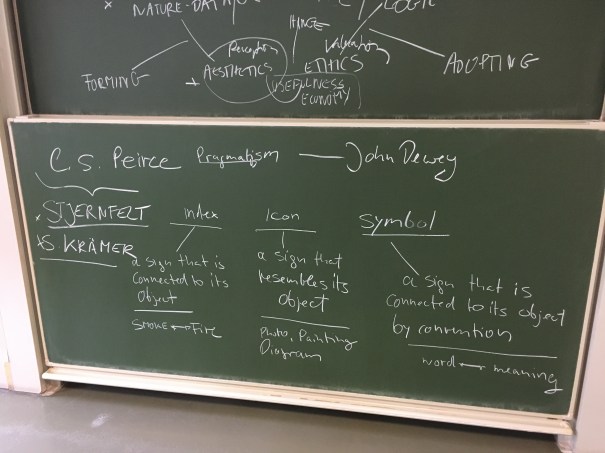 NATURE-DATA
LOGIC
Perception
Valuation
FORMING + AESTHETICS ETHICS ADOPTING
USEFULNESS
ECONOMY
C. S. Peirce Pragmatism — John Dewey
STJERNFELT
S. KRÄMER
index
a sign that is
connected to its
object
SMOKE ⟷ FIRE
Icon
a sign that
resembles its
object
Photo, Painting
Diagram
Symbol
a sign that is
connected to its object
by convention
word ⟷ meaning